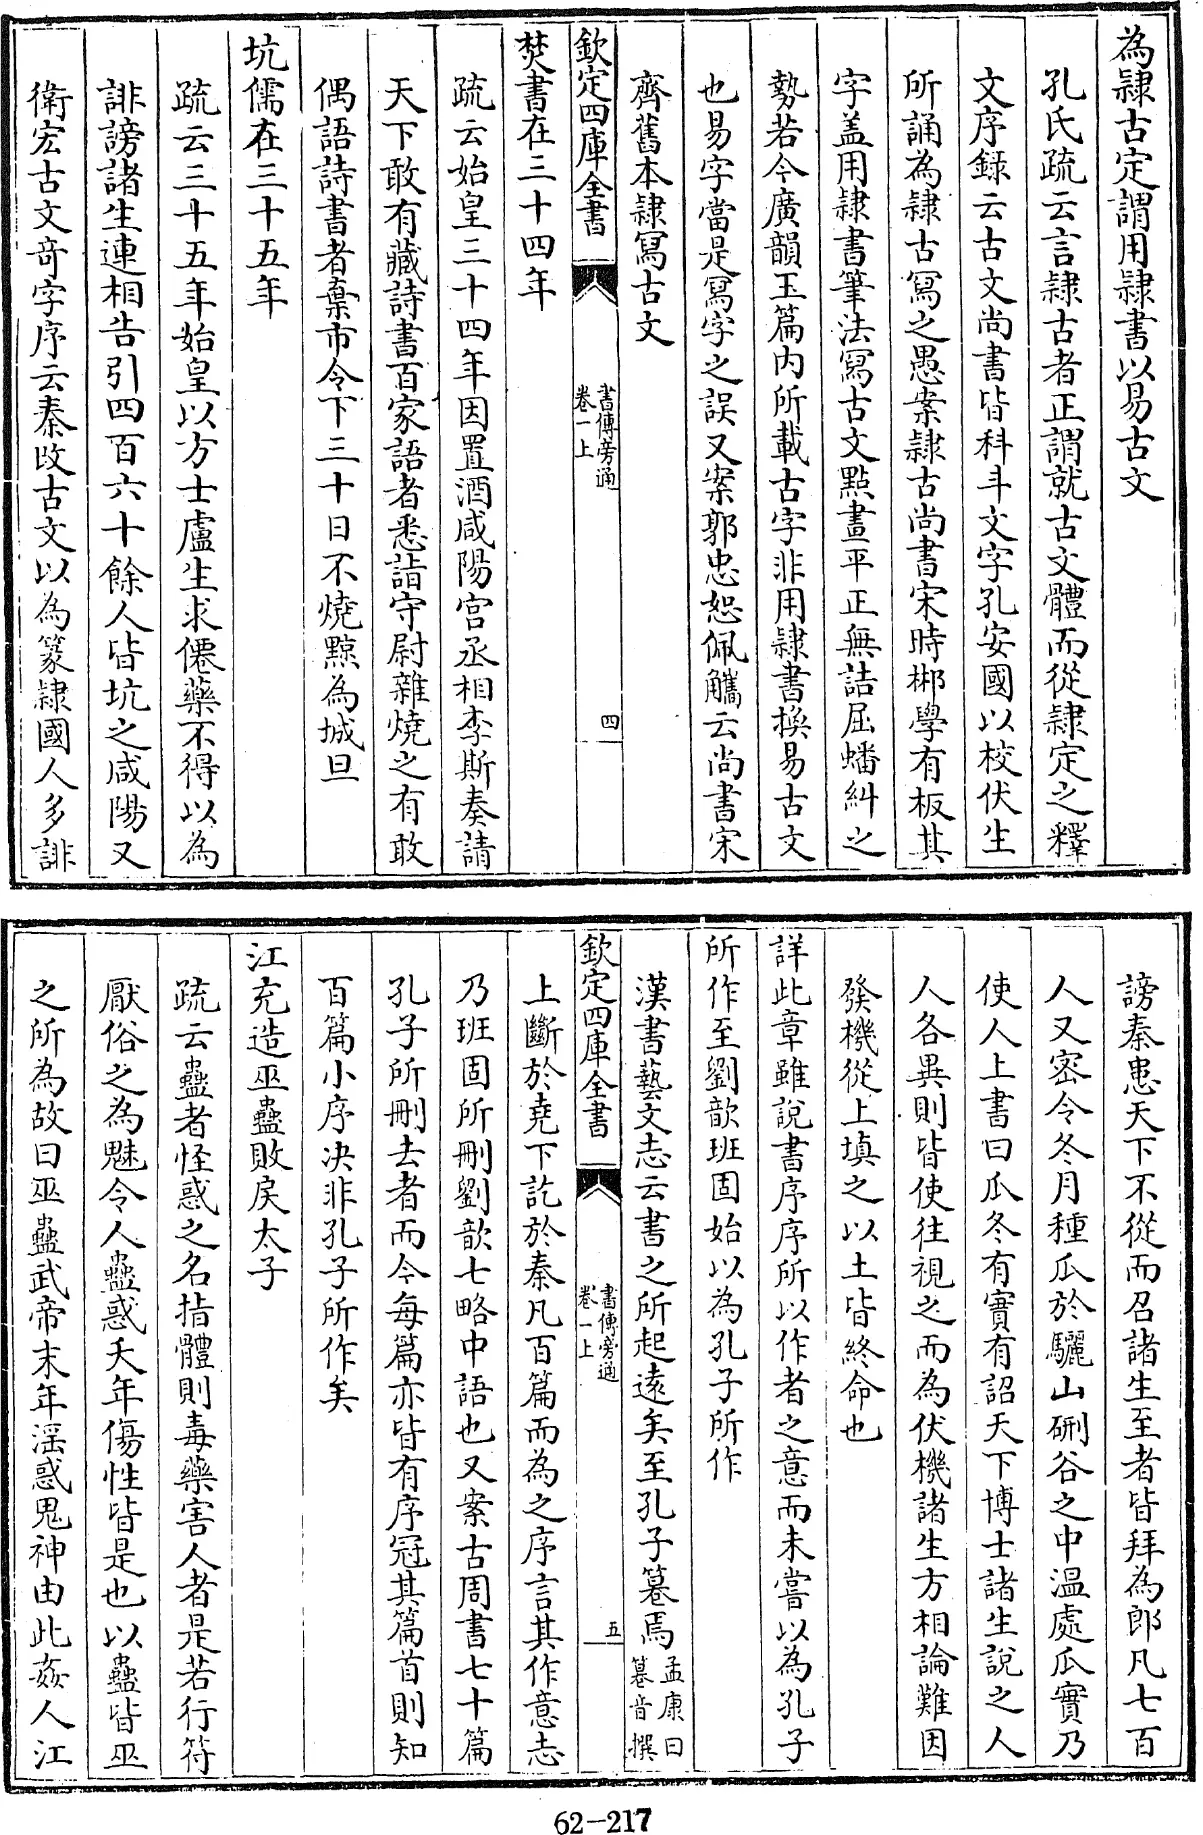 為隷古定謂用隷書以易古文
孔氏疏云言隷古者正謂就古文體而從隷定之釋
文序録云古文尚書皆科斗文字孔安國以校伏生
所誦為隷古寫之愚案隷古尚書宋時郴學有板其
字盖用隷書筆法寫古文點畫平正無詰屈蟠糾之
勢若今廣韻玉篇内所載古字非用隷書換易古文
也易字當是寫字之誤又案郭忠恕佩觿云尚書宋
齊舊本隷寫古文
欽定四庫全書
書傳旁通
卷一上
四
焚書在三十四年
疏云始皇三十四年因置酒咸陽宫丞相李斯奏請
天下敢有藏詩書百家語者悉詣守尉雜燒之有敢
偶語詩書者棄市令下三十日不燒黥為城旦
坑儒在三十五年
疏云三十五年始皇以方士盧生求僊藥不得以為
誹謗諸生連相告引四百六十餘人皆坑之咸陽又
衛宏古文奇字序云秦改古文以為篆隷國人多誹
謗秦患天下不從而召諸生至者皆拜為郎凡七百
人又密令冬月種瓜於驪山硎谷之中温處瓜實乃
使人上書曰瓜冬有實有詔天下博士諸生說之人
人各異則皆使往視之而為伏機諸生方相論難因
發機從上填之以土皆終命也
詳此章雖說書序序所以作者之意而未嘗以為孔子
所作至劉歆班固始以為孔子所作
漢書藝文志云書之所起逺矣至孔子篹焉孟康曰
篹音撰
欽定四庫全書
書傳旁通
卷一上
五
上斷於堯下訖於秦凡百篇而為之序言其作意志
乃班固所刪劉歆七略中語也又案古周書七十篇
孔子所刪去者而今每篇亦皆有序冠其篇首則知
百篇小序决非孔子所作矣
江充造巫蠱敗戾太子
疏云蠱者怪惑之名指體則毒藥害人者是若行符
厭俗之為魅令人蠱惑夭年傷性皆是也以蠱皆巫
之所為故曰巫蠱武帝末年淫惑鬼神由此姦人江
62-217